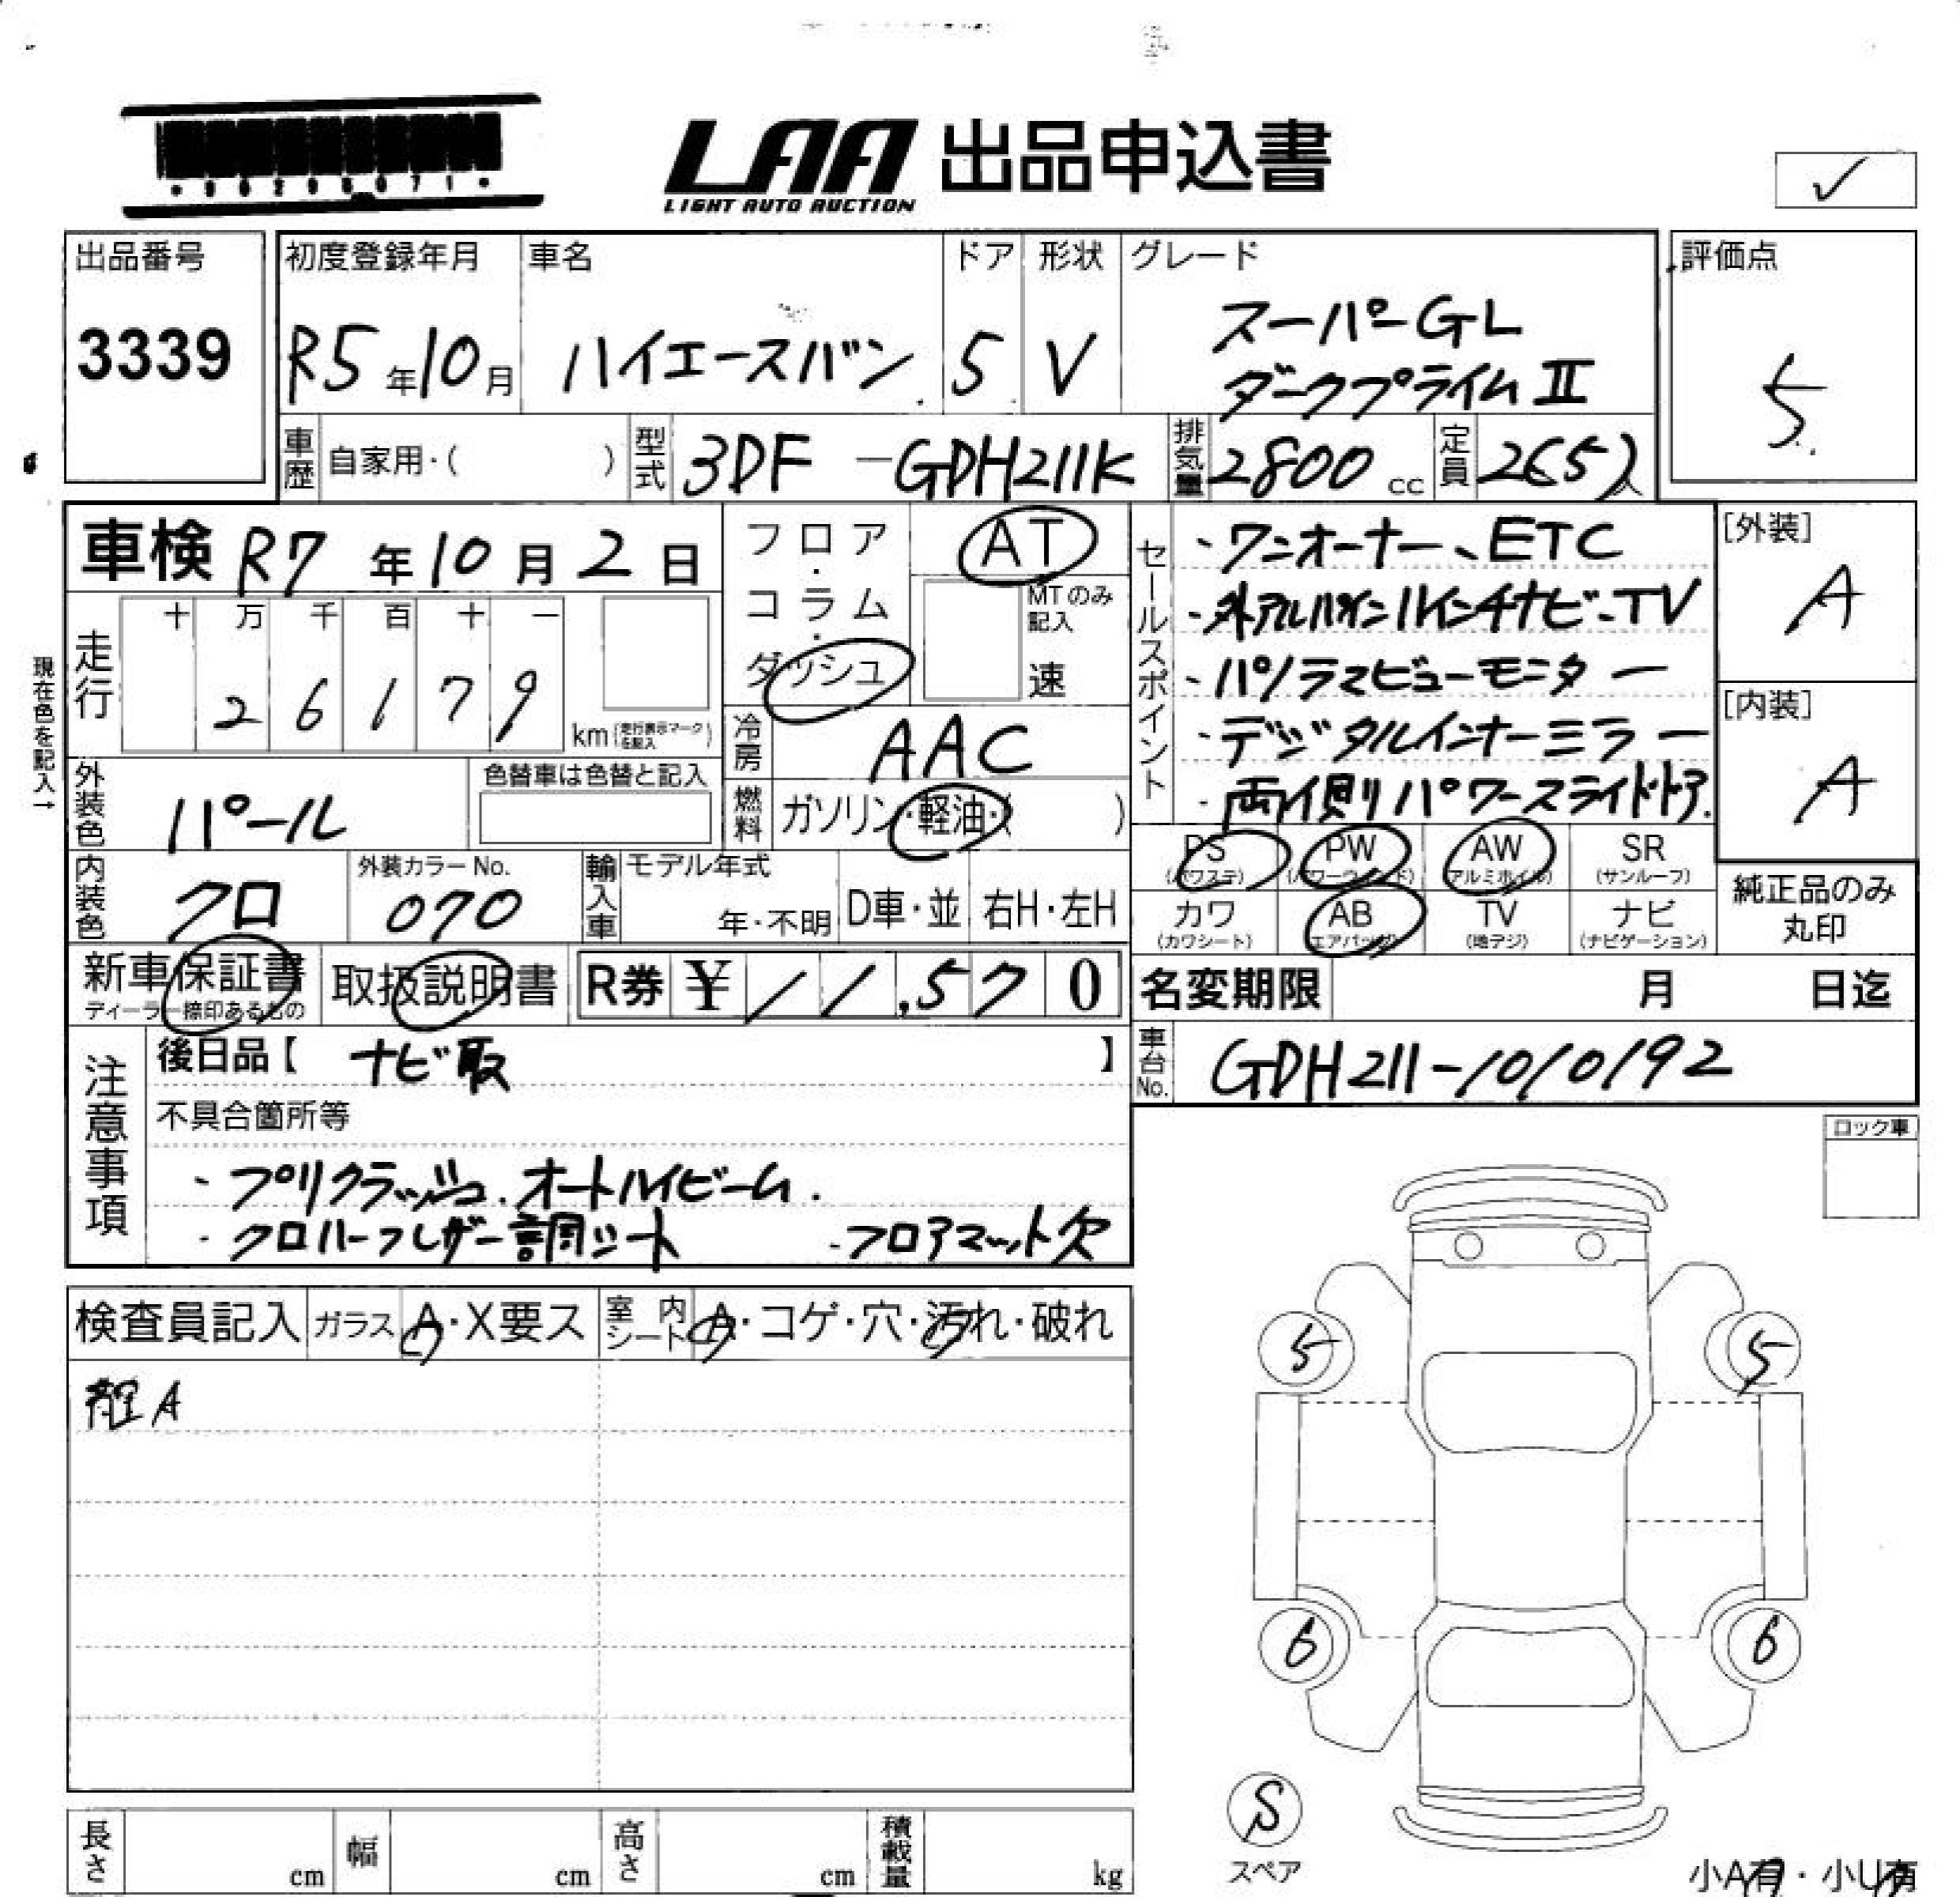 LAA 出品申込書
LIGHT AUTO AUCTION
✓
出品番号
3339
初度登録年月
R5年10月
車名
ハイエースバン
ドア
5
形状
V
グレード
スーパーGL
ダークプライムⅡ
評価点
5
車歴 自家用・( )
型式 3DF-GDH211K
排気量 2800 cc
定員
車検 R7年10月2日
フロア・コラム・ダッシュ
AT
MTのみ記入
速
走行
十 万 千 百 十 一
2 6 1 7 9
km(走行表示マークを記入)
現在色を記入→
冷房 AAC
燃料 ガソリン・軽油・( )
外装色 パール
色替車は色替と記入
内装色 クロ
外装カラーNo.
070
輸入車 モデル年式
年・不明 D車・並 右H・左H
新車保証書
ディーラー捺印あるもの
取扱説明書
R券 ¥ 11,570
セールスポイント
・ワンオーナー、ETC
・外アルパイン11インチナビ-TV
・パノラマビューモニター
・デジタルインナーミラー
・両側パワースライドドア.
[外装]
A
[内装]
A
PS (パワステ)
PW (パワーウィンド)
AW (アルミホイル)
SR (サンルーフ)
カワ (カワシート)
AB (エアバッグ)
TV (地デジ)
ナビ (ナビゲーション)
純正品のみ
丸印
名変期限 月 日迄
車台No. GDH211-1010192
注意事項
後日品【 ナビ取 】
不具合箇所等
・プリクラッシュ.オートハイビーム.
・クロハーフレザー調シート ・フロアマット欠
ロック車
検査員記入
ガラス A・X要ス
室内シート A・コゲ・穴・汚れ・破れ
A
5 5
6 6
S
スペア
長さ cm
幅 cm
高さ cm
積載量 kg
小A有・小U有